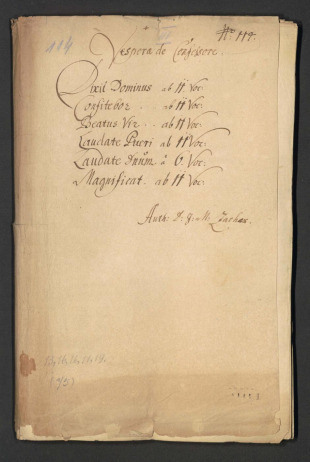 No 119.
104
Vespera de Confessore.
Dixit Dominus ab 11 Voc:
Confitebor . . ab 11 Voc:
Beatus Vir . . ab 11 Voc:
Laudate Pueri ab 11 Voc:
Laudate Dnum. à 6 Voc:
Magnificat. ab 11 Voc:
Auth: D: J: M: Zachar.